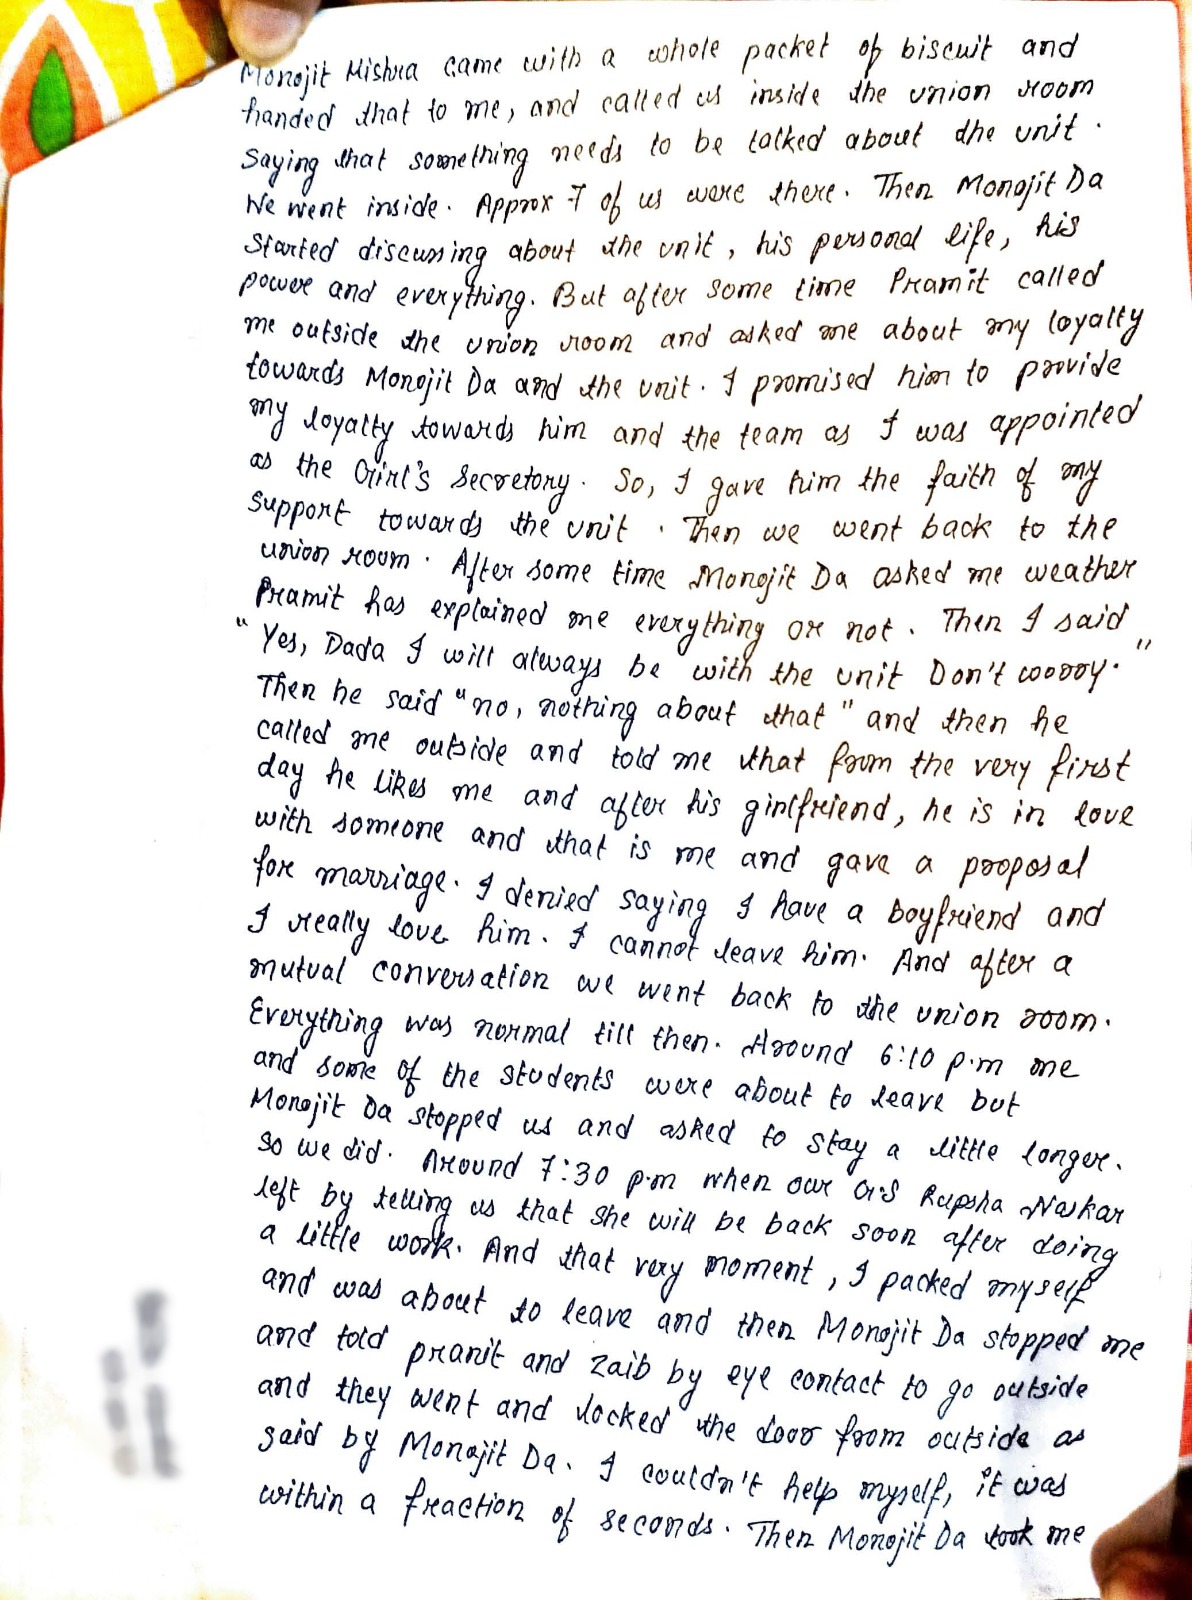 Monojit Mishra came with a whole packet of biscuit and
handed that to me, and called us inside the union room
saying that something needs to be talked about the unit.
We went inside. Approx 7 of us were there. Then Monojit Da
started discussing about the unit, his personal life, his
power and everything. But after some time Pramit called
me outside the union room and asked me about my loyalty
towards Monojit Da and the unit. I promised him to provide
my loyalty towards him and the team as I was appointed
as the Girl's Secretory. So, I gave him the faith of my
support towards the unit. Then we went back to the
union room. After some time Monojit Da asked me weather
Pramit has explained me everything or not. Then I said
"Yes, Dada I will always be with the unit Don't worry."
Then he said "no, nothing about that" and then he
called me outside and told me that from the very first
day he likes me and after his girlfriend, he is in love
with someone and that is me and gave a proposal
for marriage. I denied saying I have a boyfriend and
I really love him. I cannot leave him. And after a
mutual conversation we went back to the union room.
Everything was normal till then. Around 6:10 p.m me
and some of the students were about to leave but
Monojit Da stopped us and asked to stay a little longer.
So we did. Around 7:30 p.m when our G.S Rupsha Naskar
left by telling us that she will be back soon after doing
a little work. And that very moment, I packed myself
and was about to leave and then Monojit Da stopped me
and told pramit and zaib by eye contact to go outside
and they went and locked the door from outside as
said by Monojit Da. I couldn't help myself, it was
within a fraction of seconds. Then Monojit Da took me